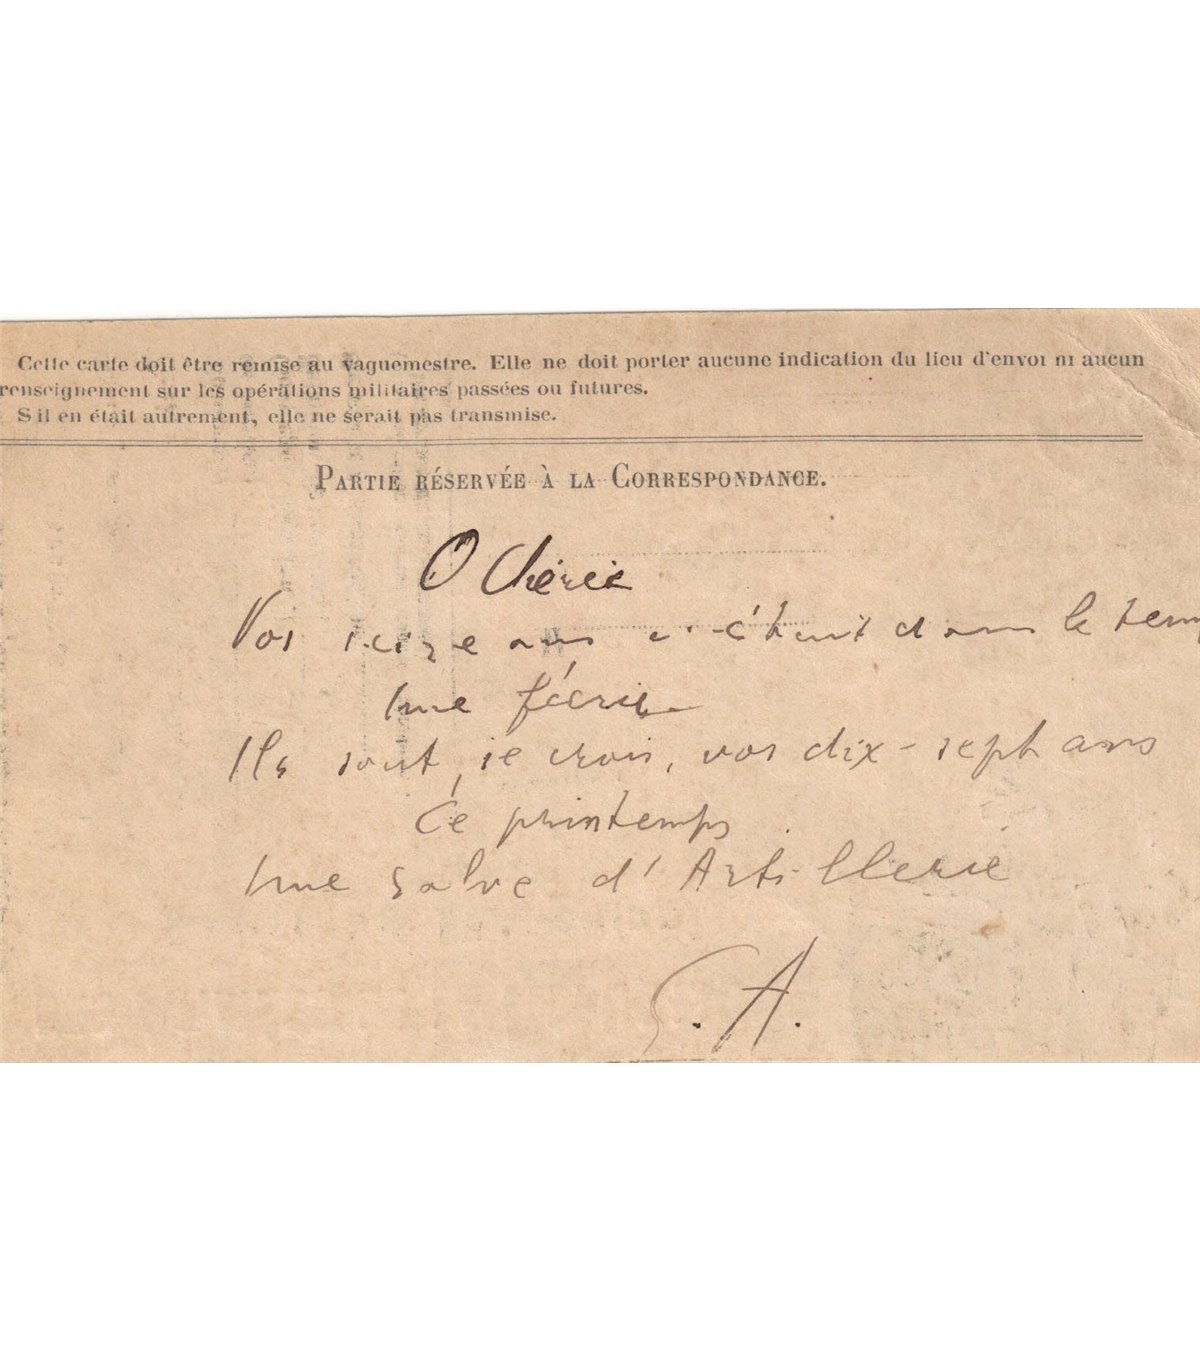 Cette carte doit être remise au vaguemestre. Elle ne doit porter aucune indication du lieu d'envoi ni aucun
renseignement sur les opérations militaires passées ou futures.
S'il en était autrement, elle ne serait pas transmise.
PARTIE RÉSERVÉE À LA CORRESPONDANCE.
O Chérie
Vos seize ans c'était dans le tem
Une féerie
Ils sont, je crois, vos dix-sept ans
Ce printemps
Une salve d'Artillerie
G. A.